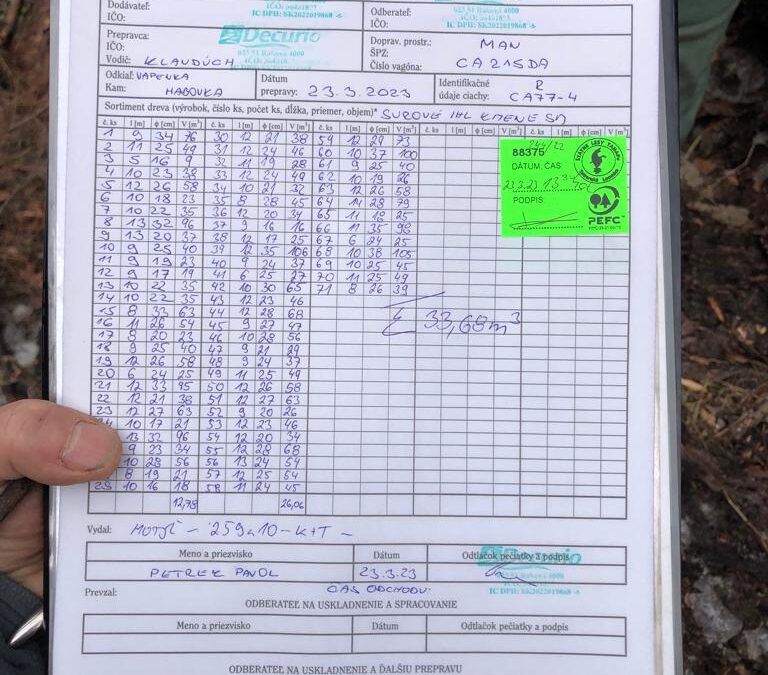 Dodávateľ:
IČO:
IČ DPH: SK2022019868 -6-
Odberateľ:
IČO:
023 51 Raková 4000
Prepravca:
IČO:
Decurio
023 51 Raková 4000
Vodič: KLAUDÚCH
Doprav. prostr.: MAN
ŠPZ:
Číslo vagóna: CA 215DA
Odkiaľ: VÁPENKA
Kam: HABOVKA
Dátum
prepravy: 23.3.2023
Identifikačné
údaje ciachy: R
CA77-4
Sortiment dreva (výrobok, číslo ks, počet ks, dĺžka, priemer, objem)* SUROVÉ IHL KMENE SM
č. ks l [m] ϕ [cm] V [m³] č. ks l [m] ϕ [cm] V [m³] č. ks l [m] ϕ [cm] V [m³] č. ks l [m] ϕ [cm] V [m³] č. ks l [m] ϕ [cm] V [m³]
1 9 34 76 30 12 21 38 59 12 29 73
2 11 25 49 31 12 24 46 60 10 37 100
3 5 16 9 32 11 19 28 61 9 25 40
4 10 23 38 33 12 24 49 62 10 19 26
5 12 26 58 34 10 21 32 63 12 26 58
6 10 18 23 35 8 28 45 64 14 28 79
7 10 22 35 36 12 20 34 65 11 18 25
8 13 32 96 37 9 16 16 66 11 35 98
9 13 20 37 38 12 17 25 67 6 24 25
10 9 25 40 39 12 35 106 68 10 38 105
11 9 19 23 40 9 24 37 69 10 25 45
12 9 17 19 41 6 25 27 70 11 25 49
13 10 22 35 42 10 30 65 71 8 26 39
14 10 22 35 43 12 23 46
15 8 33 63 44 12 28 68
16 11 26 54 45 9 27 47
17 8 20 23 46 10 28 56
18 9 25 40 47 9 21 29
19 12 26 58 48 9 24 37
20 6 24 25 49 11 25 49
21 12 33 95 50 12 26 58
22 12 21 38 51 12 27 63
23 12 27 63 52 9 20 26
10 17 21 53 12 23 46
13 32 96 54 12 20 34
9 23 34 55 12 28 68
10 28 56 56 13 24 54
8 19 21 57 12 25 54
10 16 18 58 11 24 45
12,78 26,06
Σ 33,68m³
88375
DÁTUM, ČAS:
23.3.23
PODPIS:
ŠTÁTNE LESY TANAPU
PEFC
Vydal: - 259a10-K+T -
Meno a priezvisko Dátum Odtlačok pečiatky a podpis
PETREK PAVOL 23.3.23
Decurio
IČ DPH: SK2022019868 -6-
Prevzal: ČAS ODCHODU:
ODBERATEĽ NA USKLADNENIE A SPRACOVANIE
Meno a priezvisko Dátum Odtlačok pečiatky a podpis
ODBERATEĽ NA USKLADNENIE A ĎALŠIU PREPRAVU